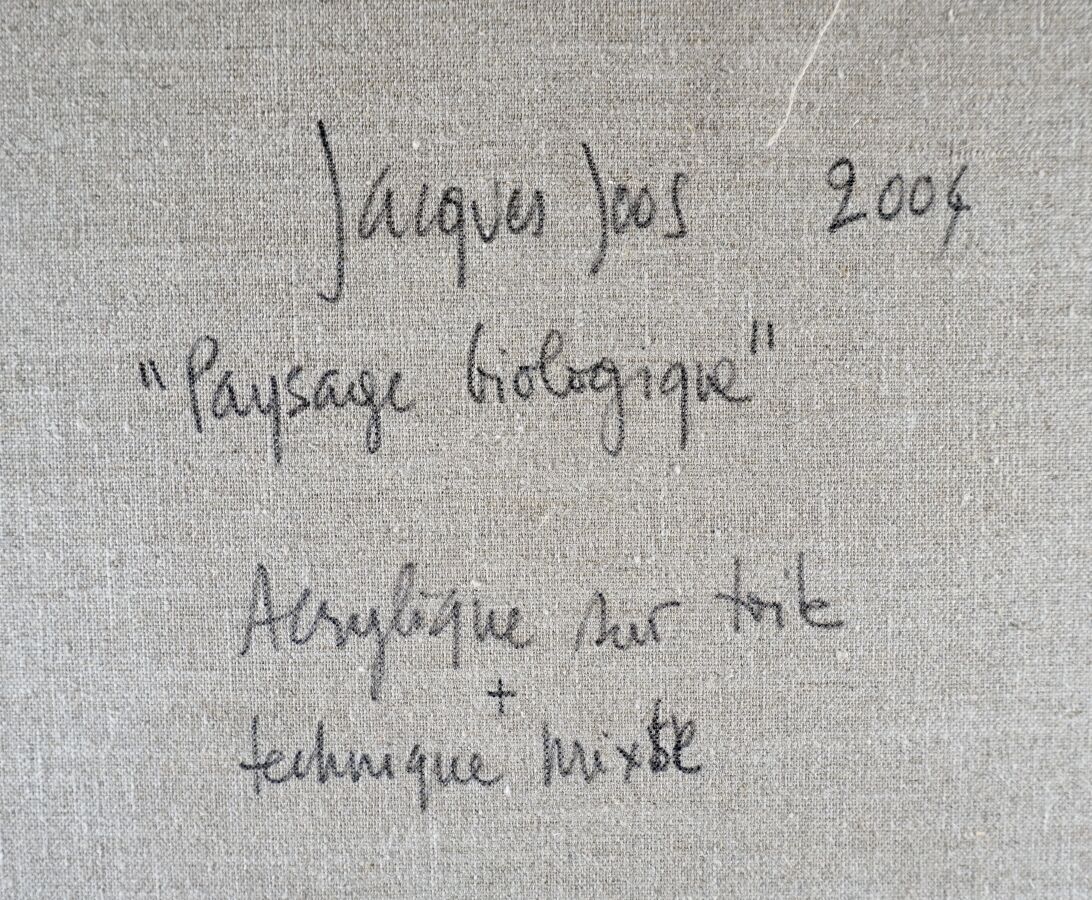 Jacques Joos 2004
"Paysage biologique"
Acrylique sur toile
+
technique mixte